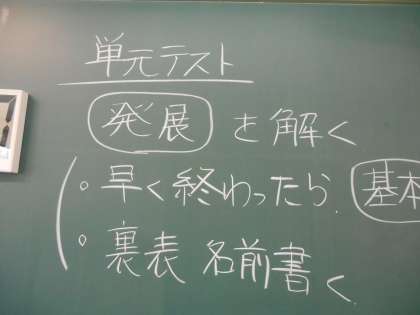 単元テスト
発展 を解く
・早く終わったら、基本
・裏表 名前書く、